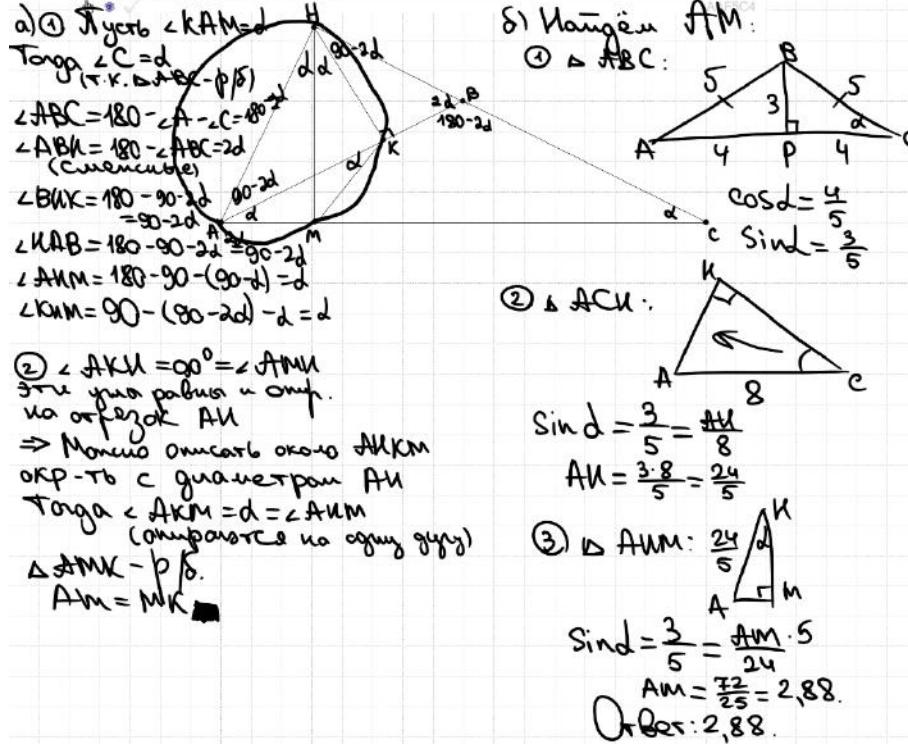 а) ① Пусть ∠KAM=α
Тогда ∠C=α
(т.к. ΔABC-р/б)
∠ABC=180-∠A-∠C=180-2α
∠ABH=180-∠ABC=2α
(смежные)
∠BHK=180-90-2α
=90-2α
∠HAB=180-90-2α=90-2α
∠AHM=180-90-(90-α)=α
∠KHM=90-(90-2α)-α=α
② ∠AKH=90°=∠AMH
эти углы равны и опир.
на отрезок AH
⇒ Можно описать около AHKM
окр-ть с диаметром AH
Тогда ∠AKM=α=∠AHM
(опираются на одну дугу)
ΔAMK-р/б.
AM=MK
H
α α
90-2α
2α B
180-2α
K
α
90-2α
α
A
M
α
C
б) Найдём AM:
① Δ ABC:
B
5 5
3
α
A 4 P 4 C
cosα=4/5
Sinα=3/5
② Δ ACH:
H
A 8 C
Sin α=3/5=AH/8
AH=3·8/5=24/5
③ Δ AHM: 24/5
H
α
A M
Sinα=3/5=AM·5/24
AM=72/25=2,88.
Ответ: 2,88.